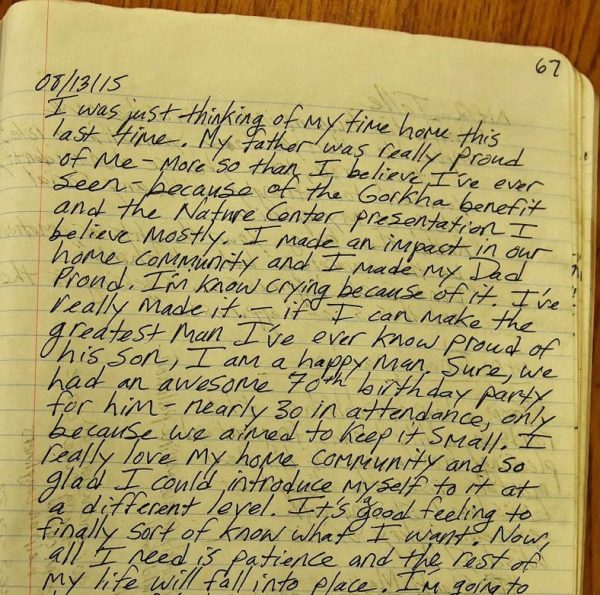 67
08/13/15
I was just thinking of my time home this
last time. My father was really proud
of me - more so than I believe I've ever
seen because of the Gorkha benefit
and the Nature Center presentation I
believe mostly. I made an impact in our
home community and I made my Dad
Proud. I'm know crying because of it. I've
really made it. - if I can make the
greatest man I've ever know proud of
his son, I am a happy man. Sure, we
had an awesome 70th birthday party
for him - nearly 30 in attendance, only
because we aimed to keep it small. I
really love my home community and so
glad I could introduce myself to it at
a different level. It's a good feeling to
finally sort of know what I want. Now,
all I need is patience and the rest of
my life will fall into place. I'm going to